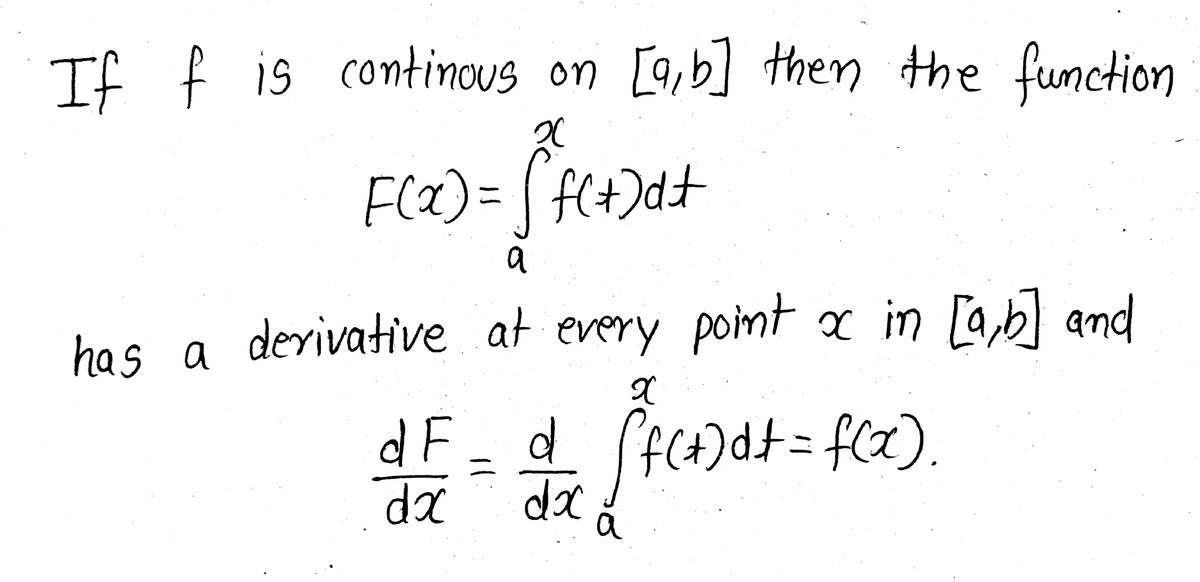 If f is continous on [a,b] then the function
F(x) = ∫ₐˣ f(t)dt
has a derivative at every point x in [a,b] and
dF/dx = d/dx ∫ₐˣ f(t)dt = f(x).